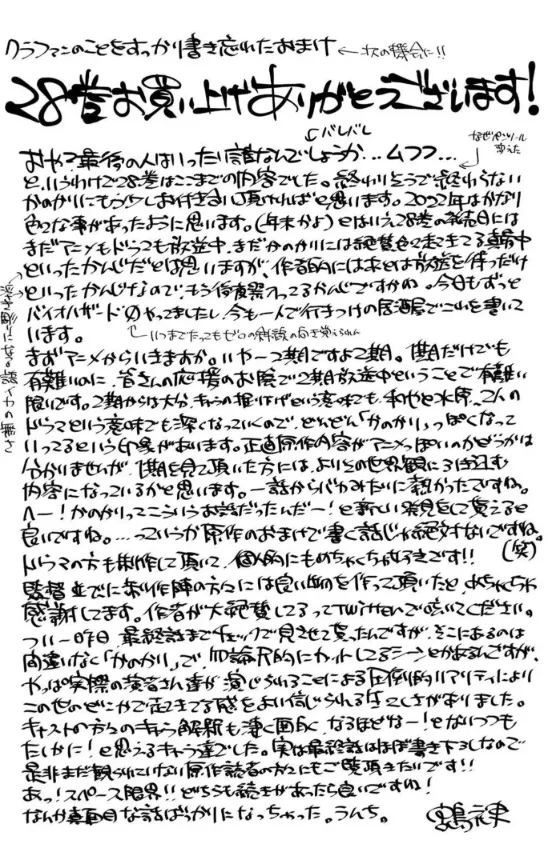 クラフマンのことをすっかり書き忘れたおまけ ←次の機会に!!
28巻お買い上げありがとうございます!
バレバレ
なぜペンツール変えた
おや?最後の人はいったい誰なんでしょうか…ムフフ…
というわけで28巻はここまでの内容でした。終わりそうで終わらない
かのかりにもう少しお付き合い頂ければと思います。2022年はかなり
色々な事があったように思います。(年末かよ)とはいえ28巻の発売日には
まだアニメもドラマも放送中、まだかのかりには絶賛色々起きてる真最中
といったかんじだとは思いますが、作者的にはあとは放送を待つだけ
といったかんじなので、もう何度祭わってるかんじですかね。今日もずっと
バイオハザード0やってましたし、今も一人で行きつけの居酒屋でこれを書いて
います。
いつまでたってもゼロの斜線の向き覚えられん
浮き彫りになる語イカの無さ
まずアニメからいきますか。いやー2期ですよ2期。1期だけでも
有難いのに、皆さんの応援のお陰で2期放送中ということで有難い
限りです。2期からは大分、キャラの掘り下げという意味でも、和也と水原、2人の
ドラマという意味でも深くなっていくので、どんどん「かのかり」っぽくなって
いってるという印象があります。正直原作内容がアニメっぽいのかどうかは
分かりませんが、1期を見て頂いた方には、よりその世界観に引き込む
内容になっているかと思います。一話からバカみたいに熱かったですね。
へー!かのかりってこういうお話だったんだー!と新しい発見をして貰えると
良いですね。…っていうか原作のおまけで書く話じゃ絶対ないですね。
(笑)
ドラマの方も制作して頂いて、個人的にもめちゃくちゃ好きです!!
監督並びに制作陣の方々には良い物を作って頂いたと、めちゃくちゃ
感謝してます。作者が大絶賛してるってTwitterで呟いてください。
つい一昨日、最終話までチェックで見させて貰ったんですが、そこにあるのは
間違いなく「かのかり」で、勿論尺的にカットしてるシーンとかあるんですが、
やっぱ実際の演者さん達が演じられることによる圧倒的リアリティにより
この世のどこかで起きてる感をより信じられる生々しさがありました。
キャストの方々のキャラ解釈も凄く面白く、なるほどなー!とかいつも
たしかに!と思えるキャラ達でした。実は最終話はほぼ書き下ろしなので
是非まだ観られていない原作読者の方々にもご覧頂きたいです!!
あっ!スペース限界!!どちらも続きがあったら良いですね!
なんか真面目な話ばっかりになっちゃった。うんち。
宮島礼吏